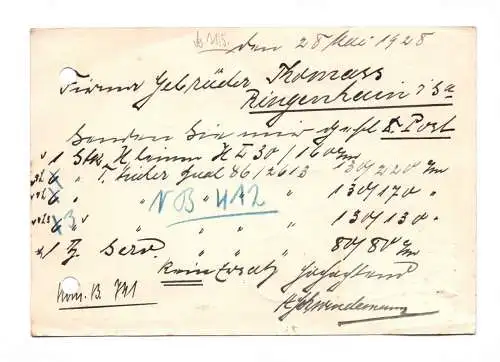 den 28 Mai 1928
Firma Gebrüder Thomass
Ringenhain i Sa
Senden Sie mir gefl. d. Post
1 Stck H leinen H L 30/160 cm
6 T. tücher Qual 86/2613 130/220 cm
" " " " 130/170 "
N B 412
6 " " " " 130/130 "
1 Dz. Serv. " " 80/80 cm
Kein Ersatz Hochachtend
Kom. B. 741